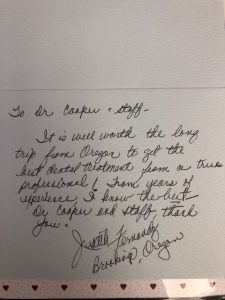 To Dr Cooper & staff -
It is well worth the long
trip from Oregon to get the
best dental treatment from a true
professional! From years of
experience I know the best
Dr Cooper and staff, thank
you!
Judith
Brookings, Oregon